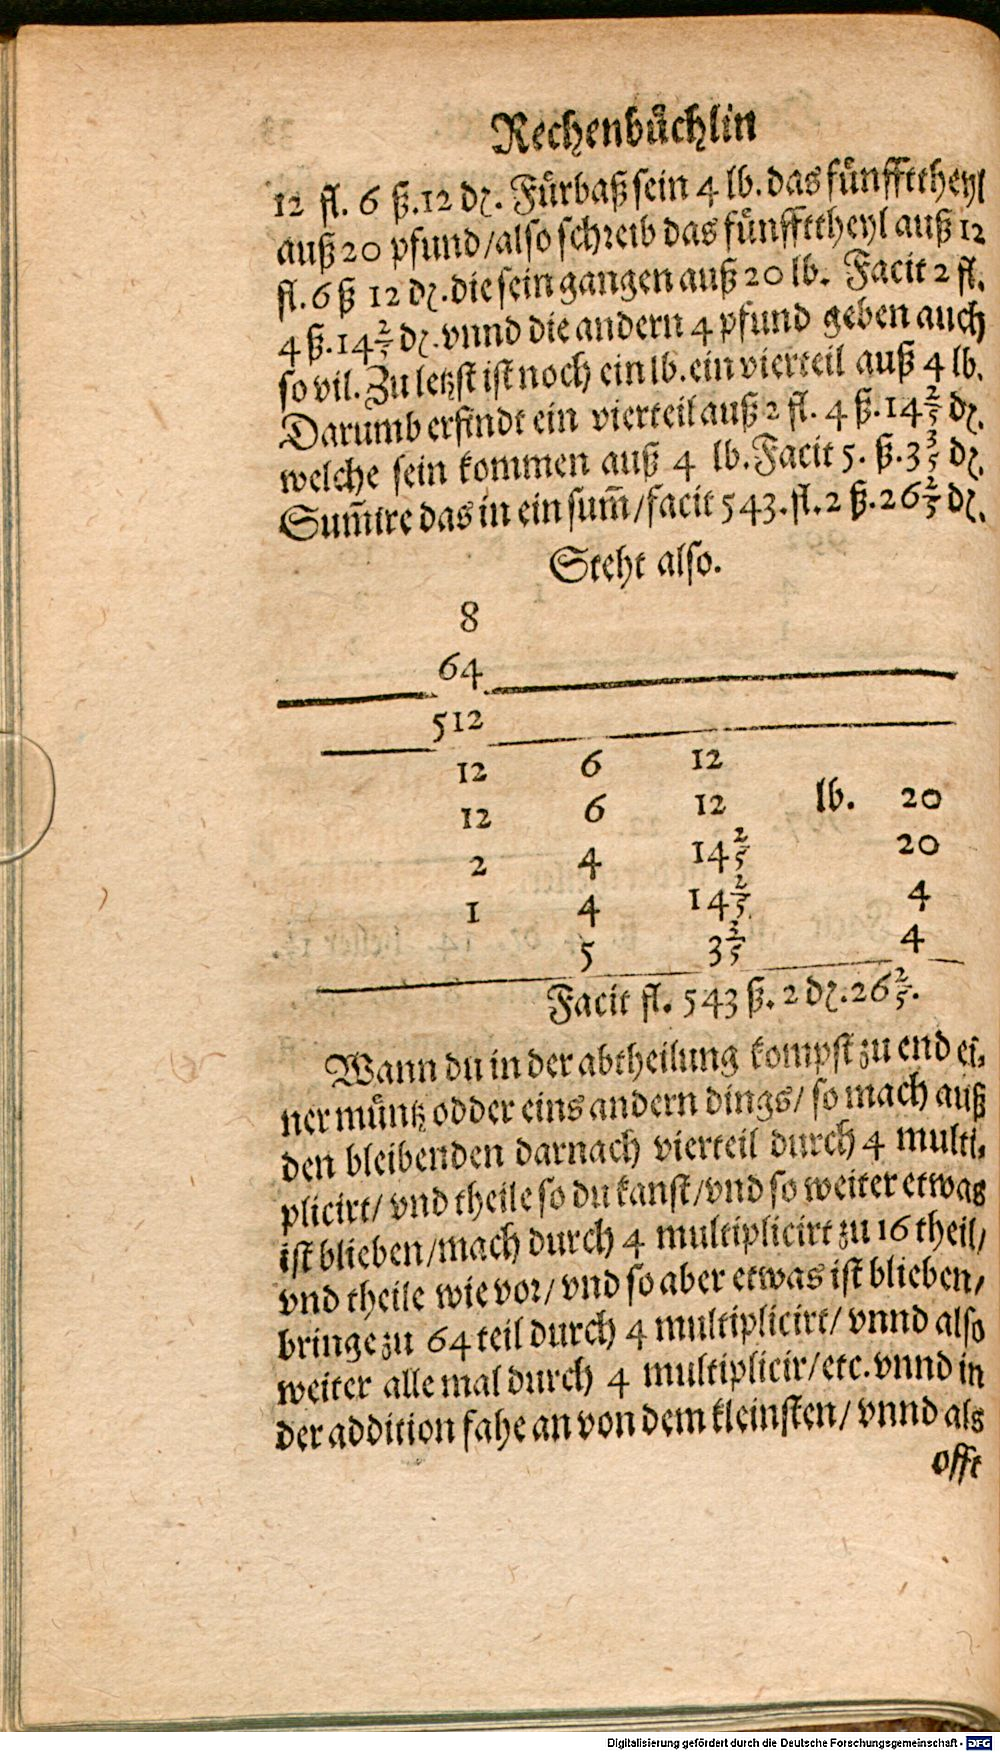 Rechenbuͤchlin
12 fl. 6 ß. 12 dꝫ. Fuͤrbaß sein 4 lb. das fuͤnffttheyl
auß 20 pfund / also schreib das fuͤnffttheyl auß 12
fl. 6 ß 12 dꝫ. die sein gangen auß 20 lb. Facit 2 fl.
4 ß. 14 2/5 dꝫ. vnnd die andern 4 pfund geben auch
so vil. Zu letzst ist noch ein lb. ein vierteil auß 4 lb.
Darumb erfindt ein vierteil auß 2 fl. 4 ß. 14 2/5 dꝫ.
welche sein kommen auß 4 lb. Facit 5. ß. 3 3/5 dꝫ.
Sum̄ire das in ein sum̄ / facit 543. fl. 2 ß. 26 2/5 dꝫ.
Steht also.
8
64
512
12 6 12
12 6 12 lb. 20
2 4 14 2/5 20
1 4 14 2/5 4
5 3 3/5 4
Facit fl. 543 ß. 2 dꝫ. 26 2/5.
Wann du in der abtheilung kompst zu end ei-
ner muͤntz odder eins andern dings / so mach auß
den bleibenden darnach vierteil durch 4 multi-
plicirt / vnd theile so du kanst / vnd so weiter etwas
ist blieben / mach durch 4 multiplicirt zu 16 theil /
vnd theile wie vor / vnd so aber etwas ist blieben /
bringe zu 64 teil durch 4 multiplicirt / vnnd also
weiter alle mal durch 4 multiplicir / etc. vnnd in
der addition fahe an von dem kleinsten / vnnd als
offt
Digitalisierung gefördert durch die Deutsche Forschungsgemeinschaft - DFG